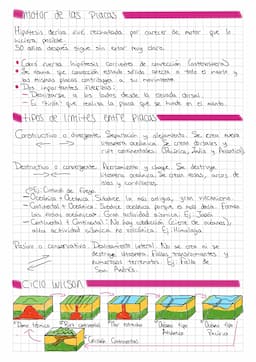 motor de las placas
Hipótesis deriva fue rechazada por carecer de motor que la
hiciera posible.
50 años después sigue sin estar muy claro.
Cobró fuerza hipótesis corrientes de convección (astenosfera)
Se asume que convección estado sólido afecta a todo el manto y
las mismas placas contribuyen a su movimiento.
Dos importantes fuerzas:
- Deslizarse a los lados desde la elevada dorsal.
- El "tirón" que realiza la placa que se hunde en el manto.
tipos de límites entre placas
Constructivo o divergente. Separación y alejamiento. Se crea nueva
litosfera oceánica. Se crean dorsales y
rift continentales. (Islandia, África)
Destructivo o convergente. Acercamiento y choque. Se destruye
litosfera oceánica. Se crean fosas, arcos de
islas y cordilleras.
Ej: Cinturón de fuego.
- Oceánica + Oceánica. Subduce la más antigua, gran vulcanismo.
- Continental + Oceánica. Subduce oceánica porque es más densa. Forman
Gran actividad sísmica. Ej: Japón
- Continental + Continental. No hay subducción (cierre de océanos)
alta actividad sísmica no volcánica. Ej: Himalaya.
Pasivo o conservativo. Deslizamiento lateral. No se crea ni se
destruye litosfera. Fallas transformantes y
numerosos terremotos. Ej: Falla de
San Andrés.
CICLO WILSON
Domo térmico
Rift continental
Mar estrecho
Océano tipo
Atlántico
Océano tipo
Pacífico
Colisión Continental